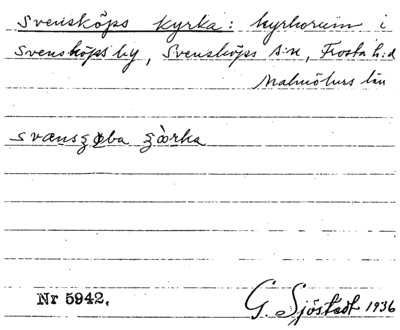 Svensköps kyrka: kyrkorum i
Svensköps by, Svensköps s:n, Frosta h:d
Malmöhus län
svænsʒøba ʒòrka
Nr 5942.
G. Sjöstedt 1936